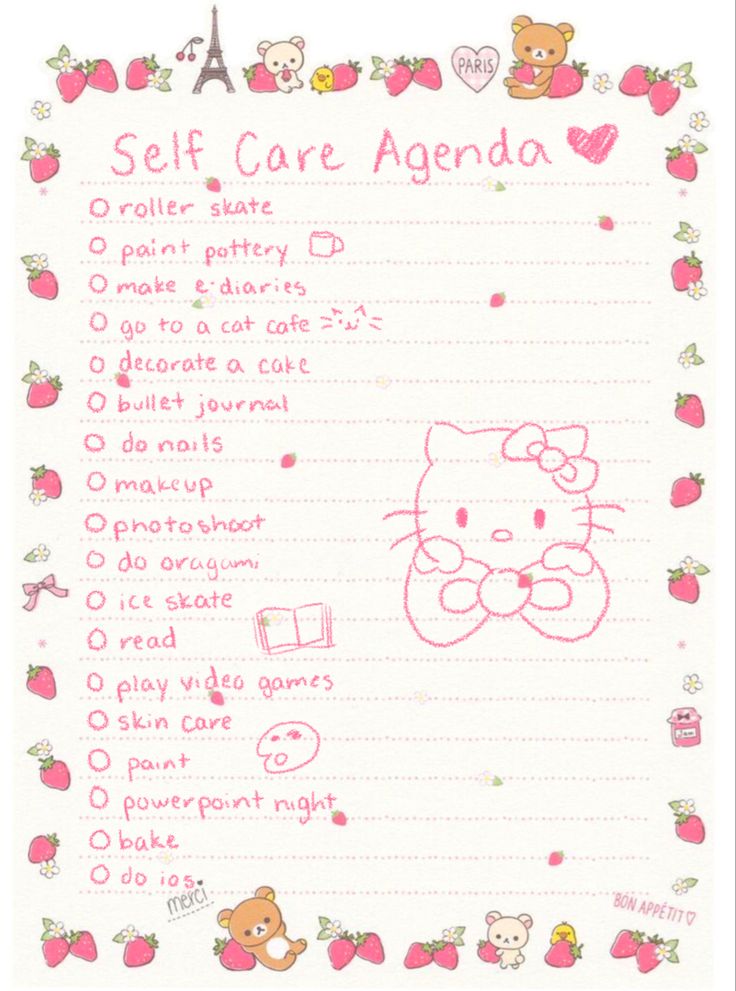 PARIS
Self Care Agenda
roller skate
paint pottery
make e-diaries
go to a cat cafe
decorate a cake
bullet journal
do nails
makeup
photoshoot
do oragami
ice skate
read
play video games
skin care
paint
Jam
powerpoint night
bake
do ios
merci
BON APPÉTIT